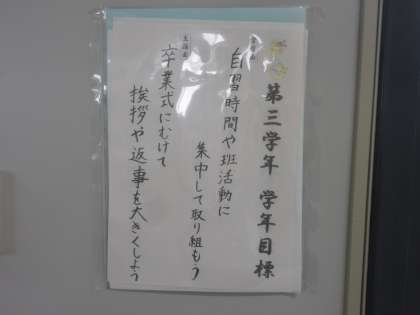 第三学年 学年目標
自習時間や班活動に
集中して取り組もう
卒業式にむけて
挨拶や返事を大きくしよう